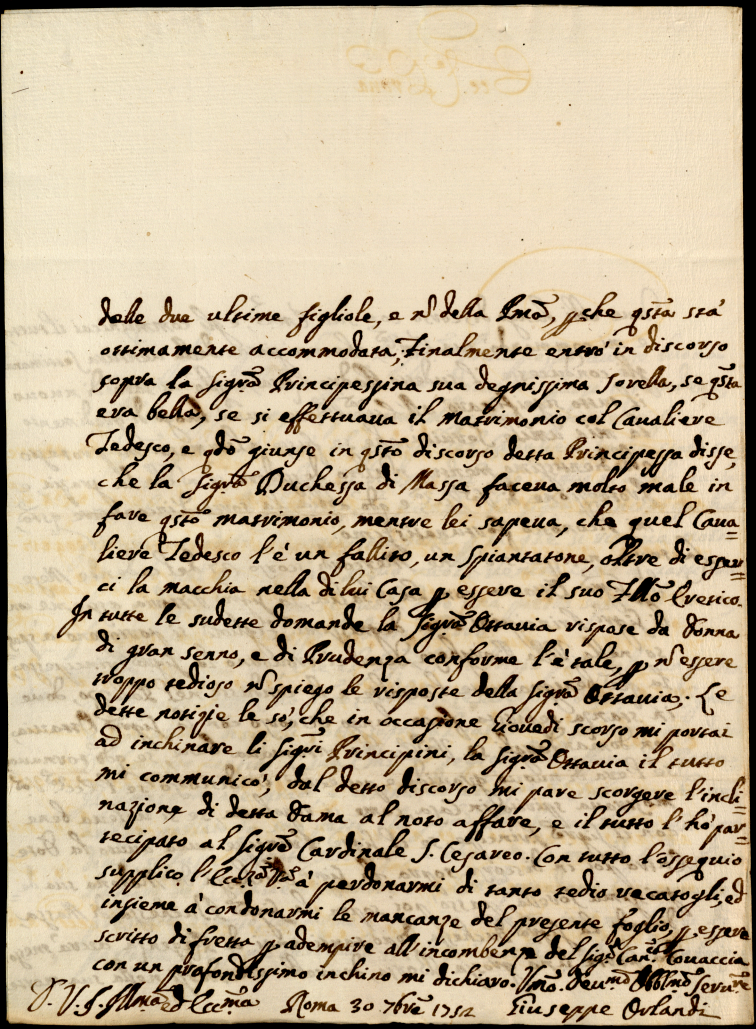 delle due ultime figliole, e nō della Pmā, p che qstā stà
ottimamente accommodata; Finalmente entrò in discorso
sopra la Sigrā Principessina sua degnissima Sorella, se qstā
era bella, se si effettuaua il matrimonio col Caualiere
Tedesco, e qdō giunse in qstō discorso detta Principessa disse,
che la Sigrā Duchessa di Massa faceua molto male in
fare qstō matrimonio, mentre lei sapeua, che quel Caua=
liere Tedesco l'è un fallito, un Spiantatone, oltre di esser=
ci la macchia nella di lui Casa p essere il suo Eretico.
In tutte le sudette domande la Sigrā Ottauia rispose da Donna
di gran senno, e di Prudenza conforme l'è tale, p nō essere
troppo tedioso nō spiego le risposte della Sigrā Ottauia; Le
dette notizie le sò, che in occasione Giouedi scorso mi portai
ad inchinare li Sigri Principini, la Sigrā Ottauia il tutto
mi communicò, dal detto discorso mi pare scorgere l'incli=
nazione di detta Dama al noto affare, e il tutto l'hò par=
tecipato al Sigrē Cardinale S. Cesareo. Con tutto l'ossequio
supplico l'Eccza Vrā à perdonarmi di tanto tedio recatogli, ed
insieme à condonarmi le mancanze del presente foglio, p essere
scritto di fretta p adempire all'incombenze del Sigr Canco Couaccia
con un profondissimo inchino mi dichiaro. Vmō Deumō Obblmō Serure
D. V. S. Illmā ed Eccmā Roma 30 7brē 1752 Giuseppe Orlandi